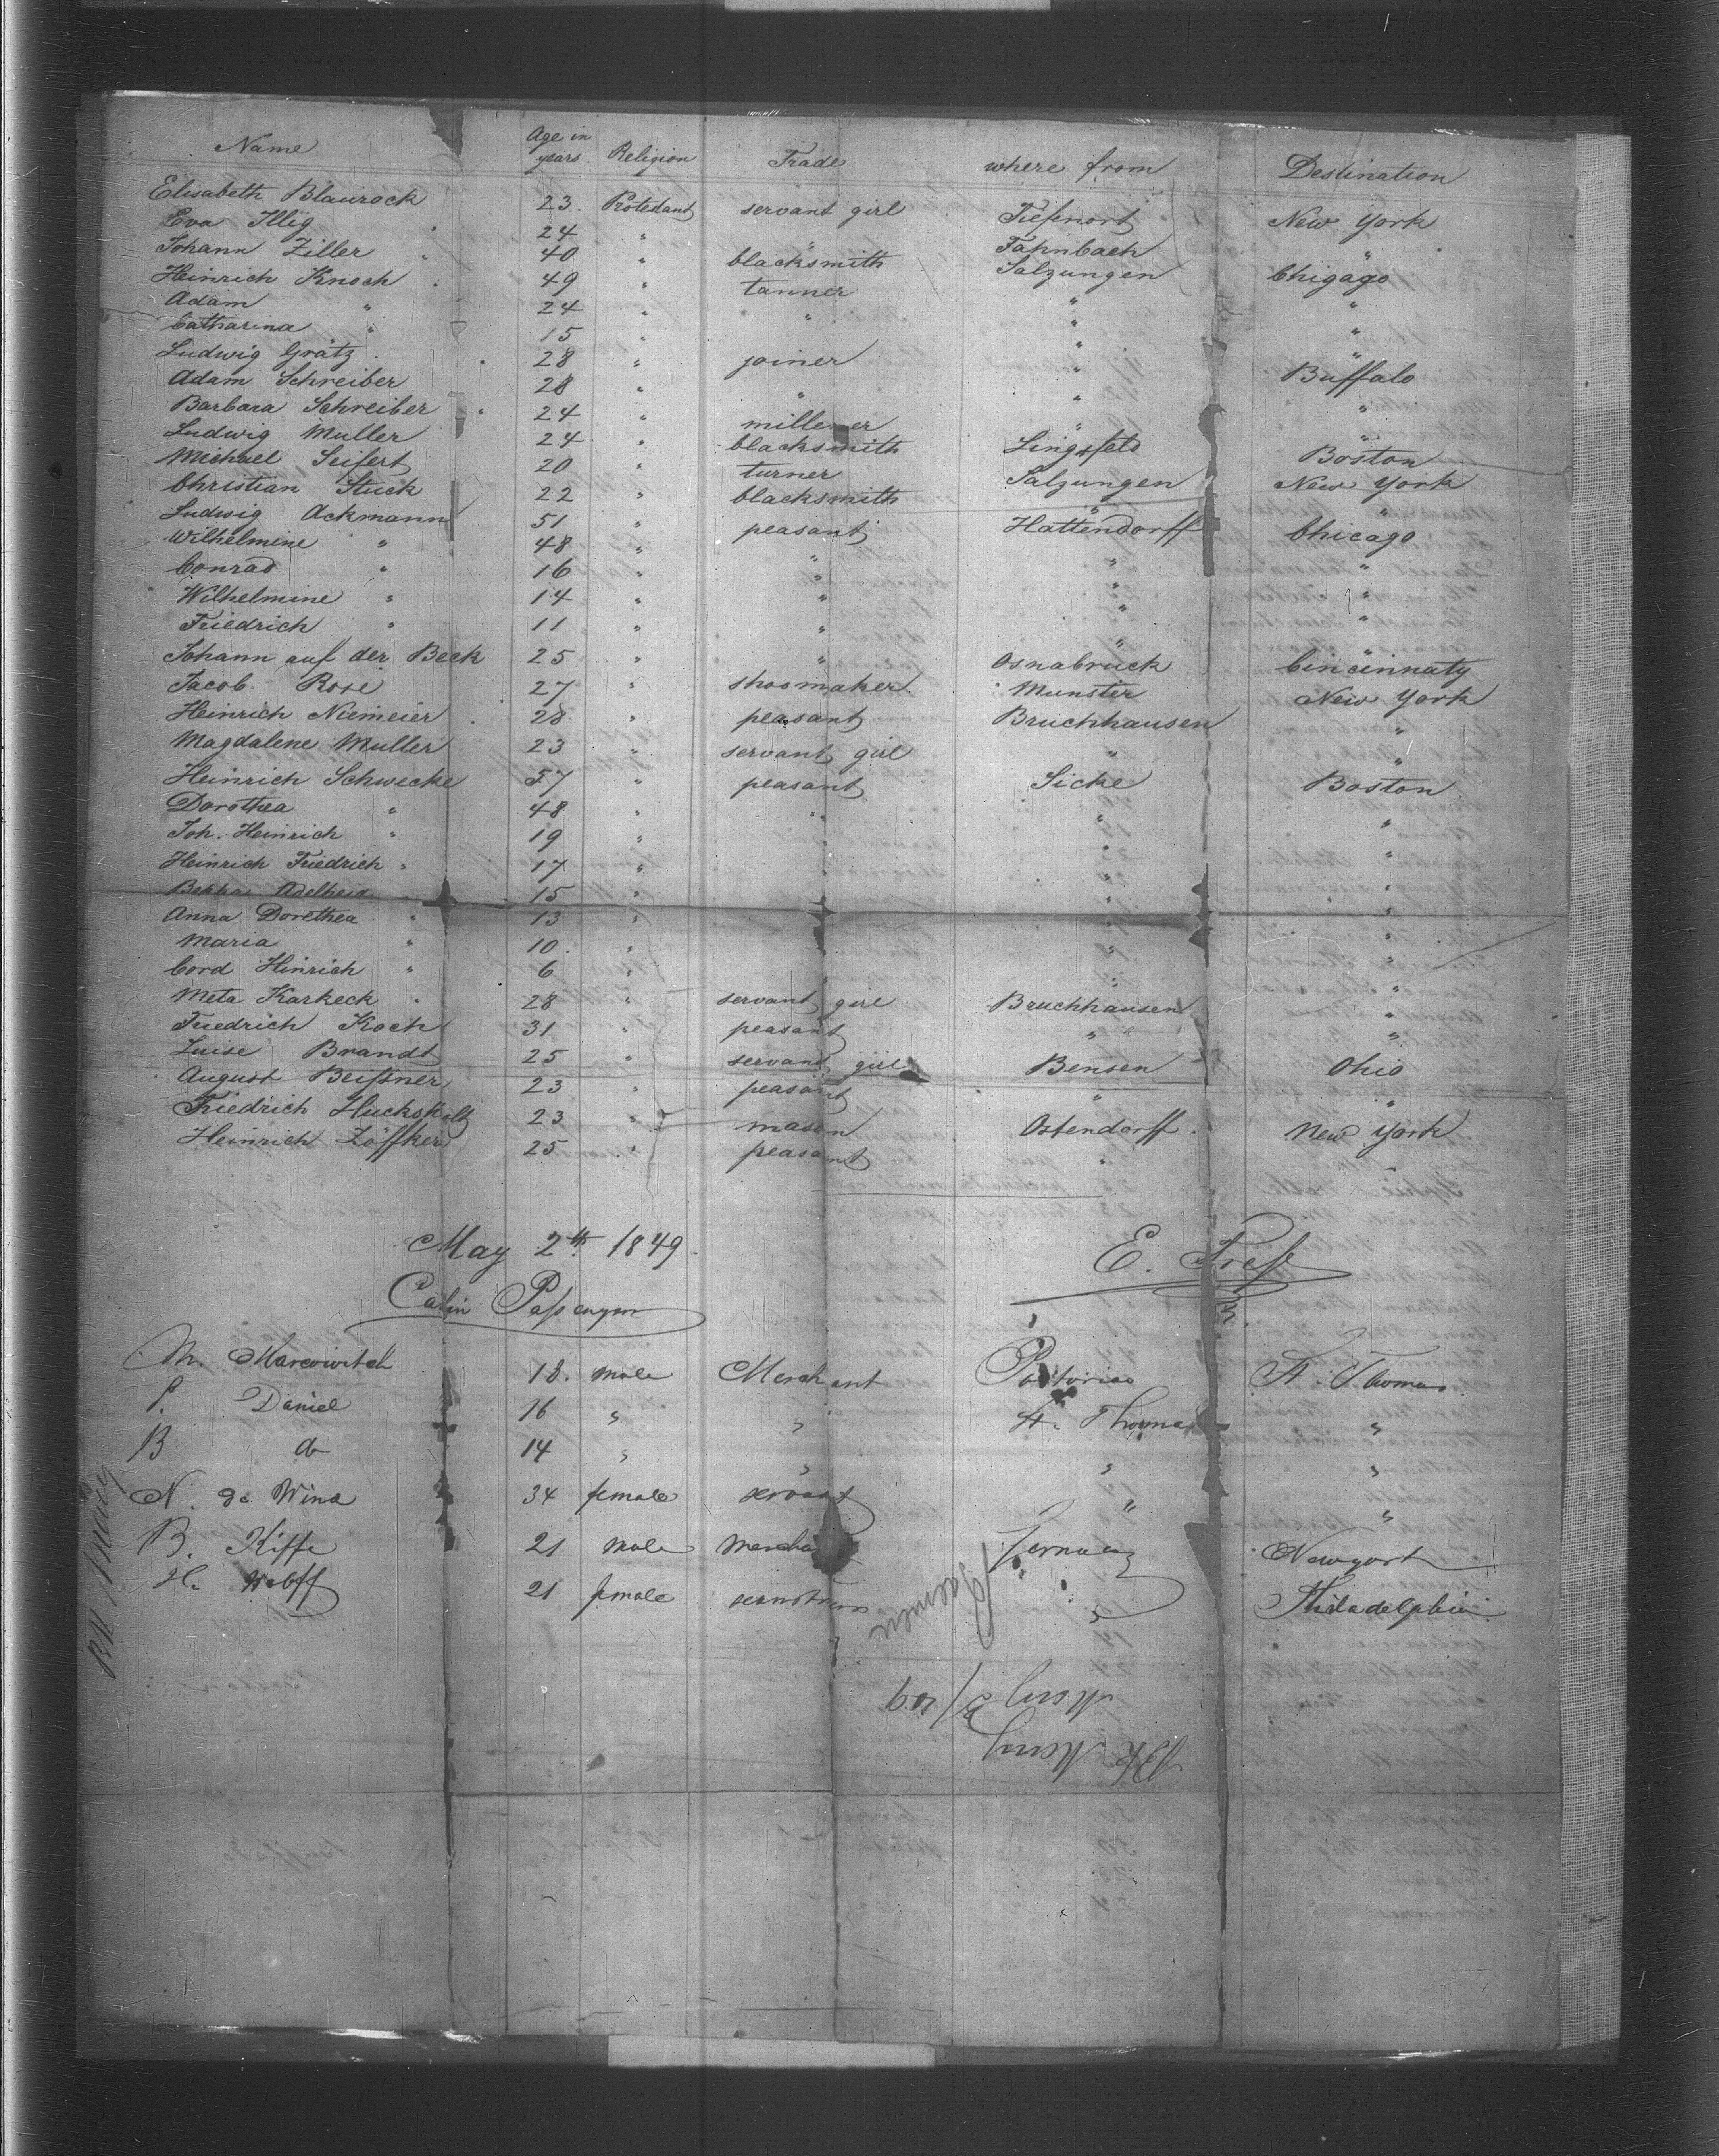 Name Age in years Religion Trade where from Destination
Elisabeth Blaurock 23. Protestant servant girl Tiefenort New York
Eva Illig 24 " " Fahnbach "
Johann Ziller 40 " blacksmith Salzungen Chigago
Heinrich Knoch 49 " tanner " "
Adam " 24 " " " "
Catharina " 15 " " "
Ludwig Grätz 28 " joiner " Buffalo
Adam Schreiber 28 " " " "
Barbara Schreiber 24 " millener " "
Ludwig Muller 24 " blacksmith Lingsfeld Boston
Michael Seifert 20 " turner Salzungen New York
Christian Stuck 22 " blacksmith " "
Ludwig Ackmann 51 " peasant Hattendorff Chicago
Wilhelmine " 48 " " " "
Conrad " 16 " " " "
Wilhelmine " 14 " " " "
Friedrich " 11 " " " "
Johann auf der Beck 25 " " Osnabrück Cincinnaty
Jacob Rose 27 " shoomaker Munster New York
Heinrich Niemeier 28 " peasant Bruchhausen "
Magdalene Muller 23 " servant girl " "
Heinrich Schwecke 57 " peasant Sicke Boston
Dorothea " 48 " " " "
Joh. Heinrich " 19 " " " "
Heinrich Friedrich " 17 " " " "
Adelheid 15 " " "
Anna Dorethea " 13 " " "
Maria " 10. " " "
Cord Hinrich " 6 " " "
Meta Karkeck 28 " servant girl Bruchhausen "
Friedrich Koch 31 " peasant " "
Luise Brandt 25 " servant girl Bensen Ohio
August Beißner 23 " peasant " "
Friedrich 23 " mason Ostendorff. New York
Heinrich Zöffker 25 " peasant " "
May 2th 1849. E. Treß
Cabin Passenger
M. Marcowitch 18. male Merchant Portorico St. Thomas
P. Daniel 16 " " St. Thomas "
B do 14 " " " "
N. de Wind 34 female servant " "
B. Kiffe 21 male Germany Newyork
H. Wolff 21 female " " Philadelphia
BK Mary
Bremen
May 3/49
Bk Mary